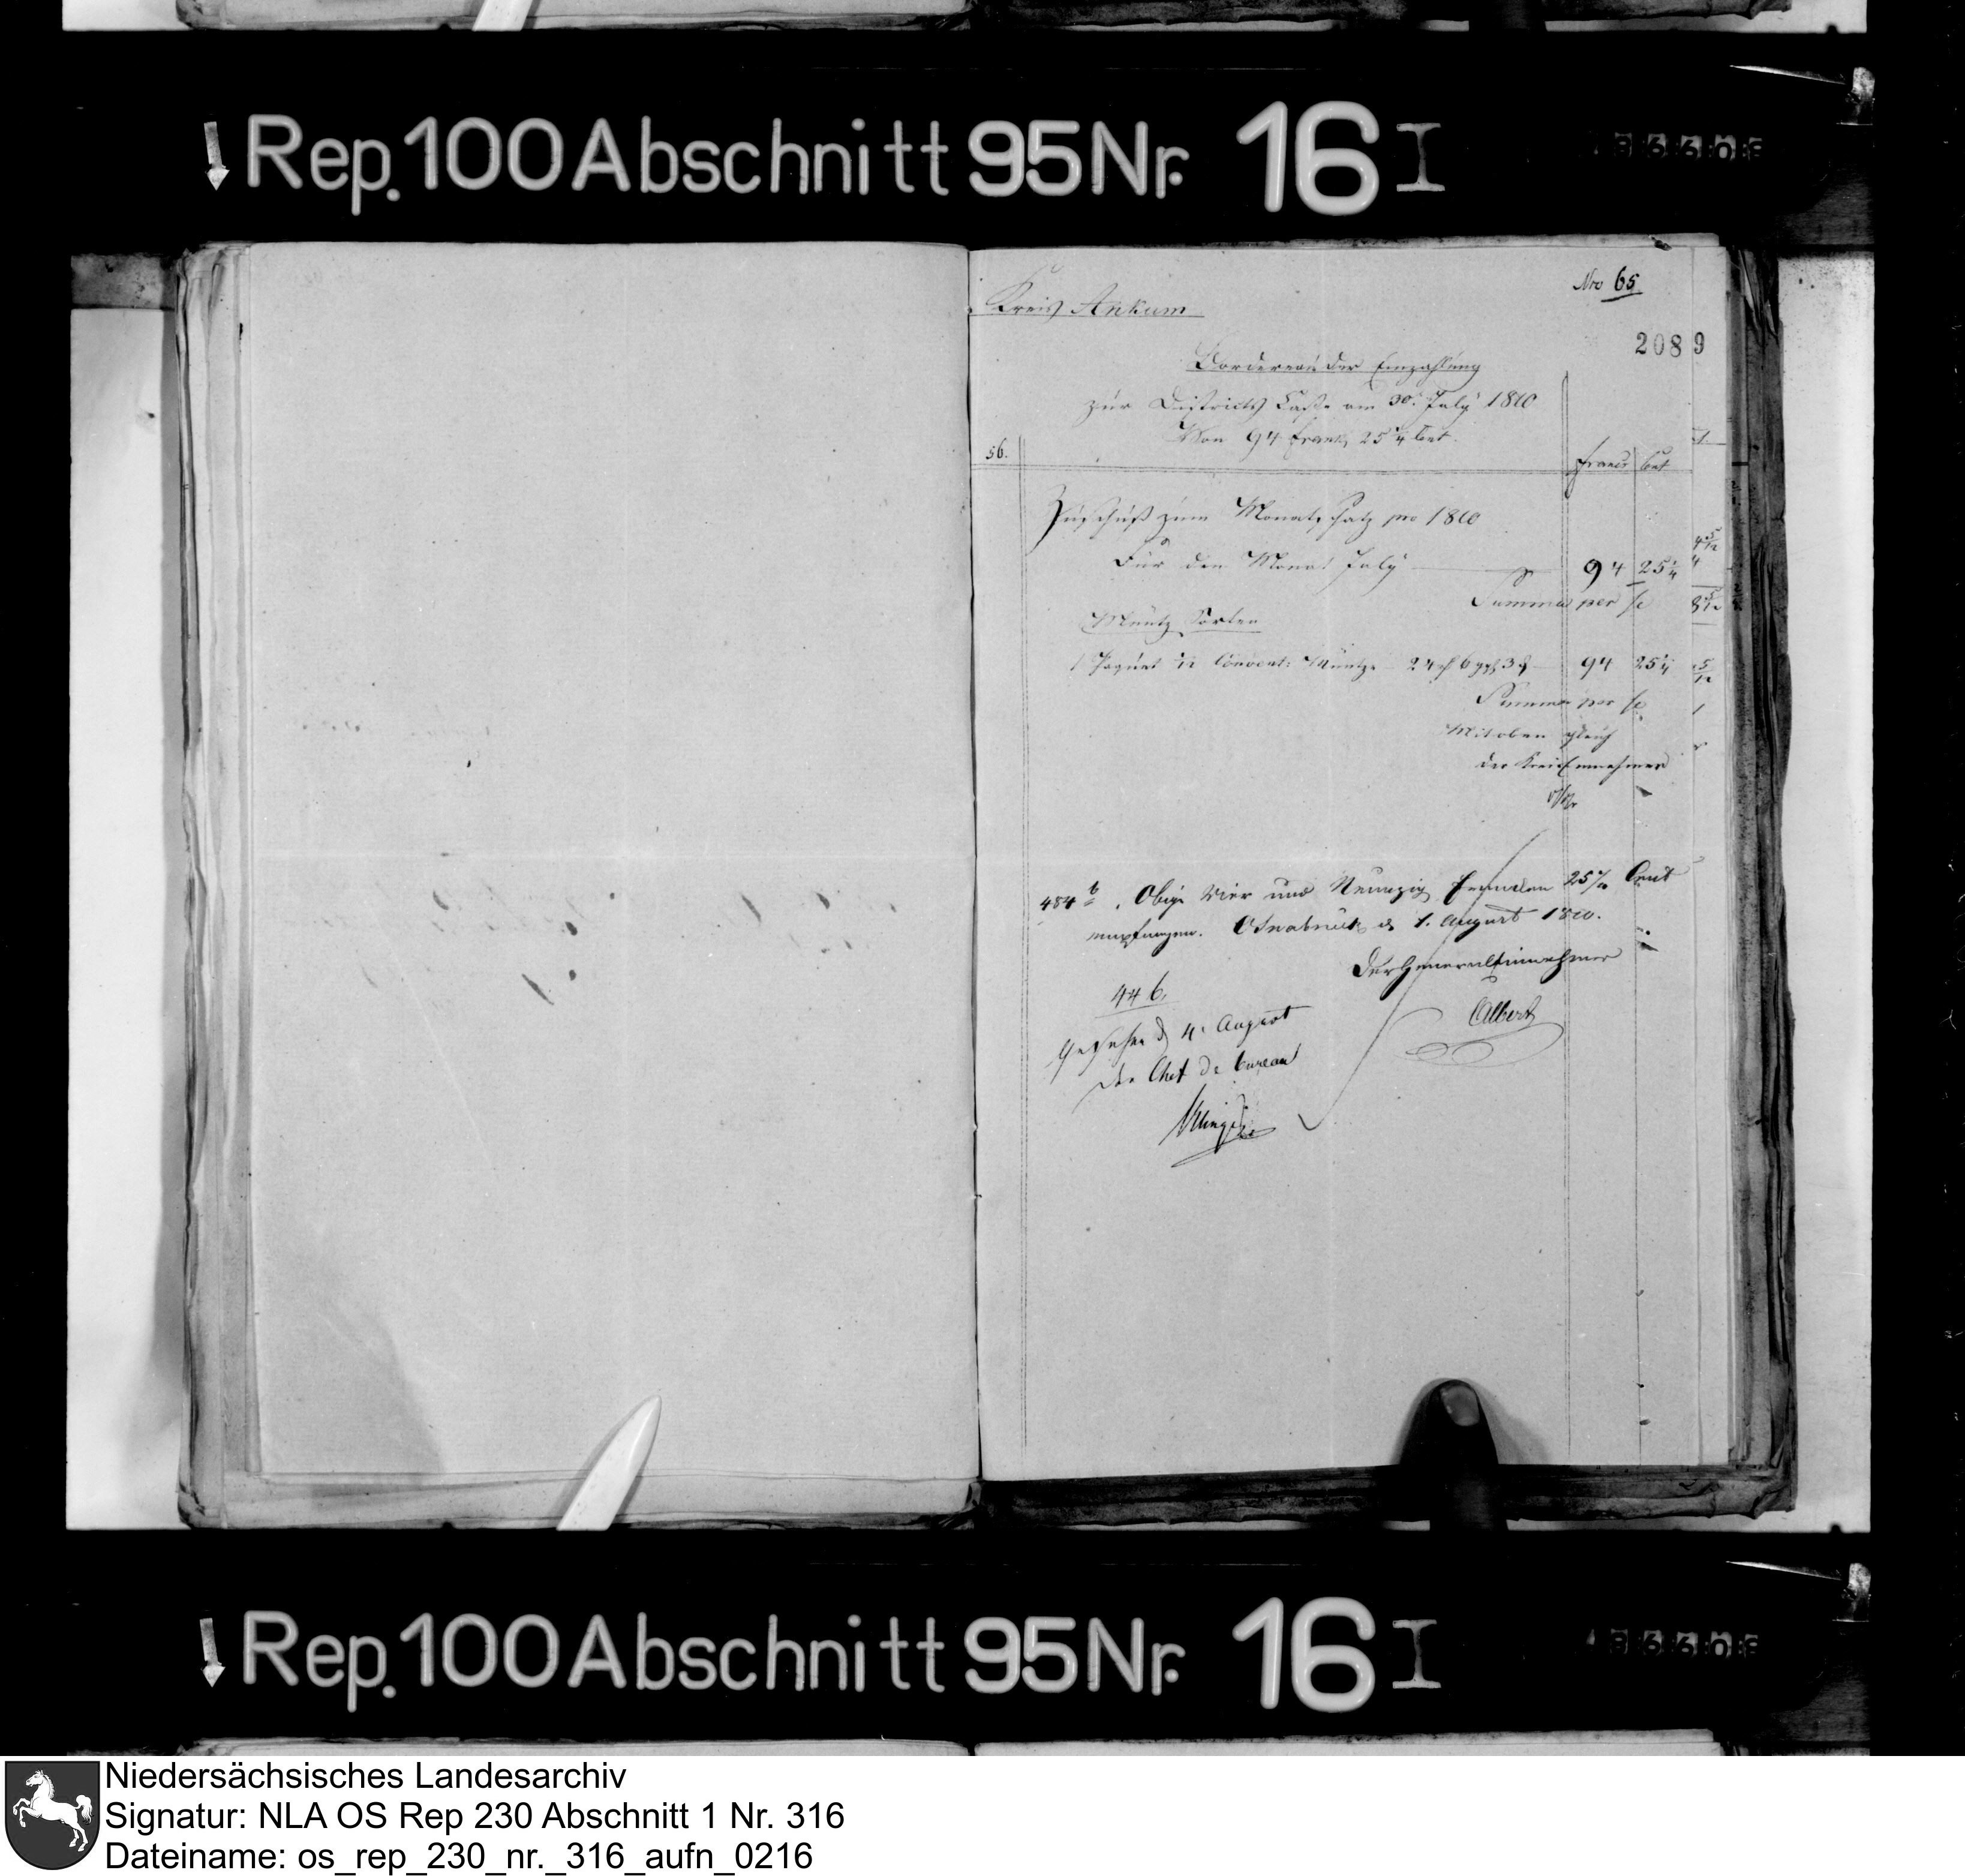 Rep. 100 Abschnitt 95 Nr. 16 I
Nro 65
Kreis Ankum
208 9
Bordereau der Einzahlung
zur Districts Casse am 30t July 1810
Von 94 Frank 25 1/4 Cent.
56.
Francs Cent
Zuschuß zum Monats satz pro 1810
Für den Monat July 94 25 1/4
Summa per se
Müntz Sorten
1 Paquet 1/12 Convent: Müntze 24 rf 6 ggl 3 d 94 25 1/4
Summa per se
Mit oben gleich
der Kreis Einnehmer
484 b. Obige Vier und Neunzig Franken 25 Cent
empfangen. Osnabrück d 1. August 1810.
Der General Einnehmer
Albert
446.
Gesehen d 4. August
Der Chef de bureau
Rep. 100 Abschnitt 95 Nr. 16 I
Niedersächsisches Landesarchiv
Signatur: NLA OS Rep 230 Abschnitt 1 Nr. 316
Dateiname: os_rep_230_nr._316_aufn_0216